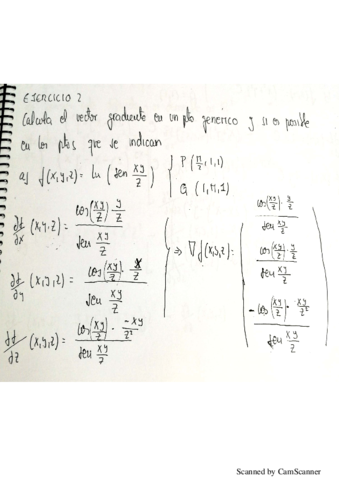 EJERCICIO 2
Calcula el vector gradiente en un pto generico y si es posible
en los ptos que se indican
a) f(x,y,z) = ln (sen xy/z) } P (π/2, 1, 1)
Q (1, π, 1)
∂f/∂x (x,y,z) = cos(xy/z) · y/z / sen xy/z
∂f/∂y (x,y,z) = cos(xy/z) · x/z / sen xy/z
∂f/∂z (x,y,z) = cos(xy/z) · -xy/z² / sen xy/z
⇒ ∇f(x,y,z) =
cos(xy/z) · y/z / sen xy/z
cos(xy/z) · y/z / sen xy/z
-cos(xy/z) · xy/z² / sen xy/z
Scanned by CamScanner